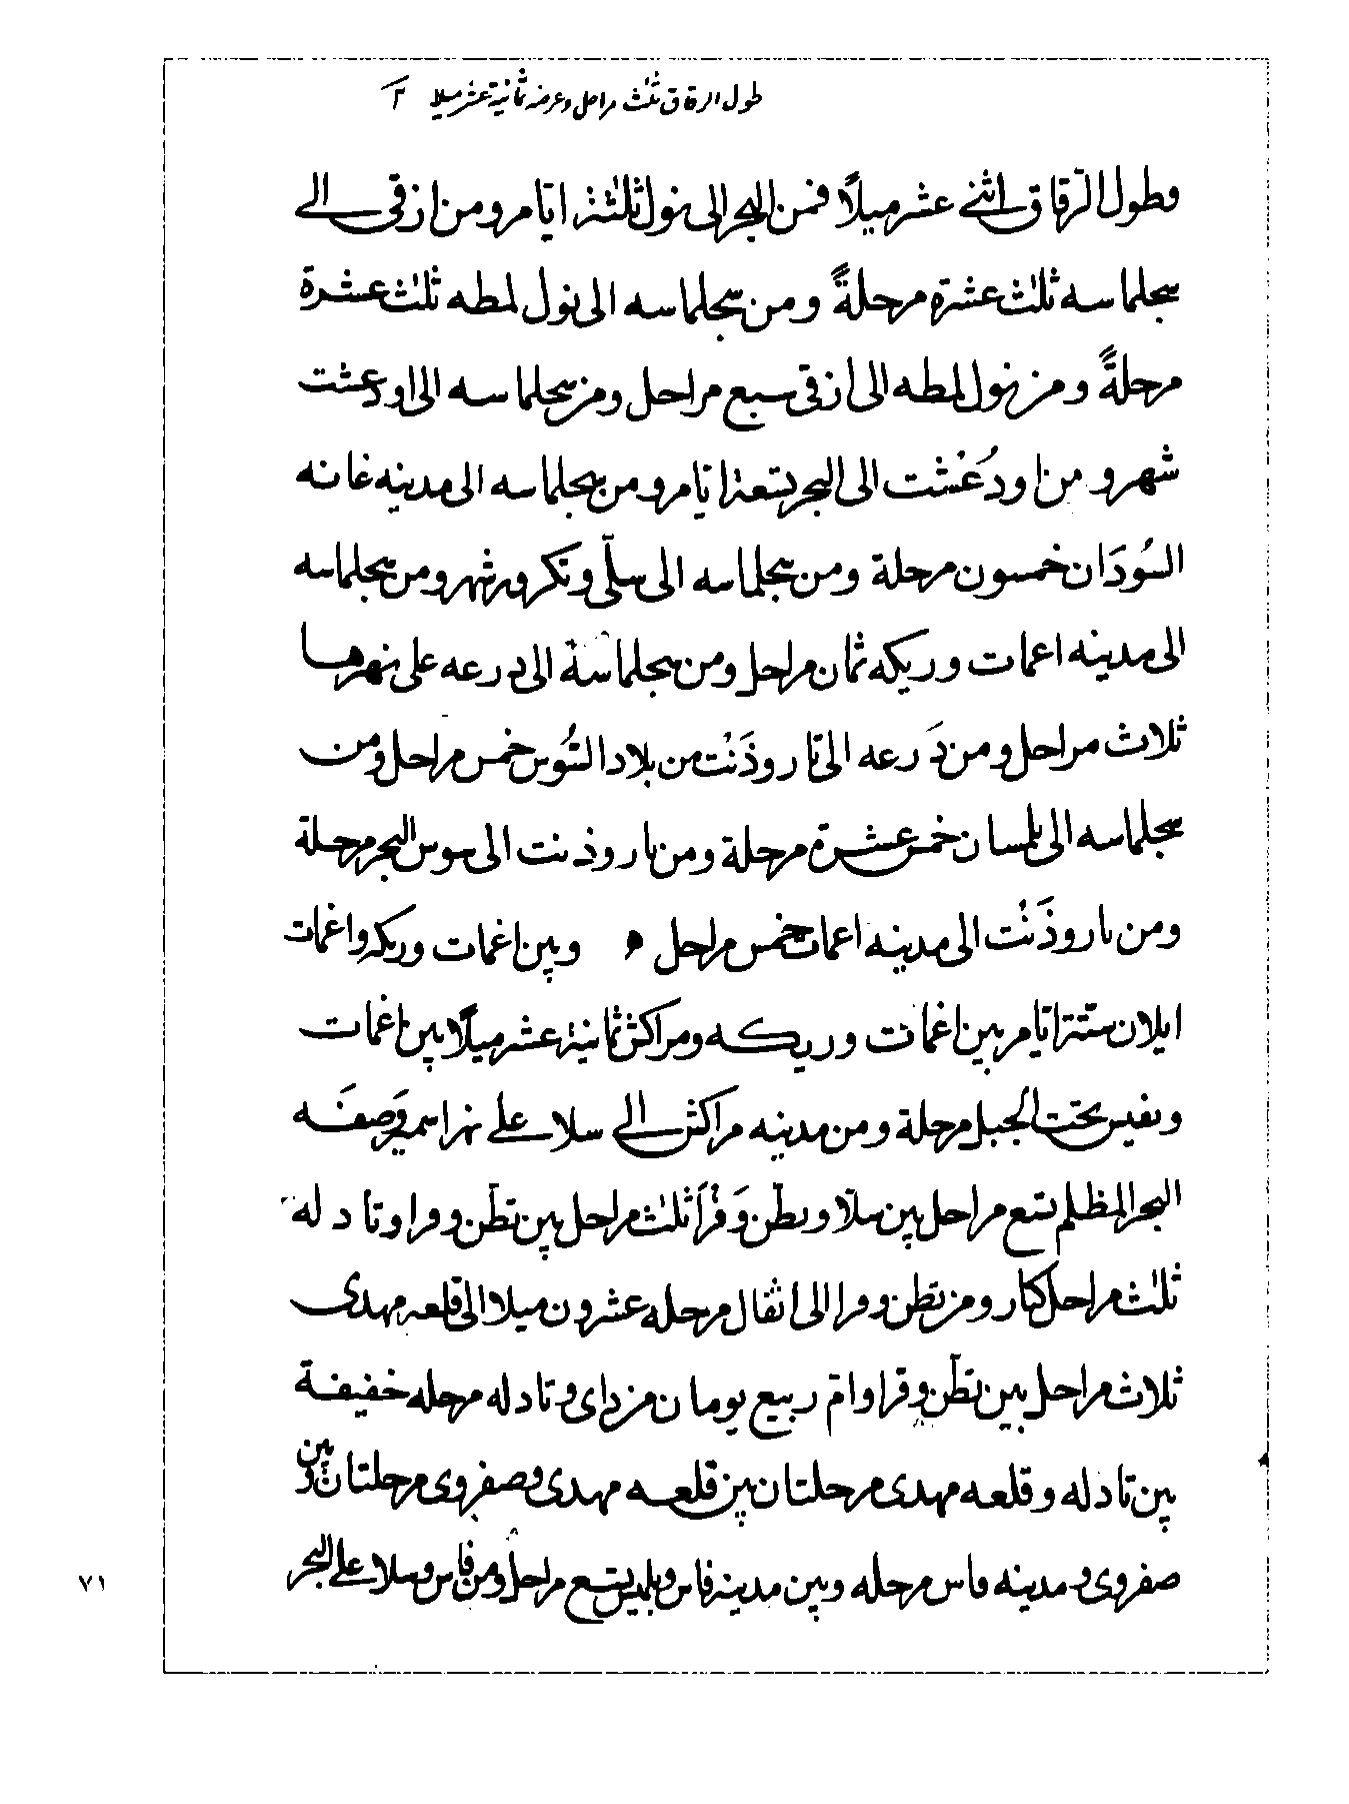 طول الرقاق ثلث مراحل وعرضه ثمانية عشر ميلا
وطول الزقاق اثنى عشر ميلًا فمن البحر الى نول ثلثة ايام ومن ازقى الى
سجلماسه ثلث عشرة مرحلةً ومن سجلماسه الى نول لمطه ثلث عشرة
مرحلةً ومن نول لمطه الى ازقى سبع مراحل ومن سجلماسه الى اودغشت
شهر ومن اودُغُشْت الى البحر تسعة ايام ومن سجلماسه الى مدينه غانه
السُودَان خمسون مرحلة ومن سجلماسه الى سلّى وتكرور شهر ومن سجلماسه
الى مدينه اغمات وريكه ثمان مراحل ومن سجلماسة الى درعه على نهرها
ثلاث مراحل ومن دَرعه الى تاروذَنْت من بلاد السُّوس خمس مراحل ومن
سجلماسه الى تلمسان خمس عشرة مرحلة ومن تاروذنت الى سوس البحر مرحلة
ومن تاروذَنْت الى مدينه اغمات خمس مراحل ه وبين اغمات وريكه واغمات
ايلان ستة ايام بين اغمات وريكه ومراكش ثمانية عشر ميلًا بين اغمات
ونفيس تحت الجبل مرحلة ومن مدينه مراكش الى سلا على نهر اسمير وَصفَه
البحر المظلم تسع مراحل بين سلّا وبطّن وَقْرَا ثلث مراحل بين تطّن وقرا وتادله
ثلث مراحل كبار ومن تطن وقرا الى اثقال مرحله عشرون ميلا الى قلعه مهدى
ثلاث مراحل بين تطّن وقرا وامّ ربيع يومان من داى وتادله مرحله خفيفة
بين تادله وقلعه مهدى مرحلتان بين قلعه مهدى وصفروى مرحلتان وبين
صفروى ومدينه فاس مرحله وبين مدينة فاس وبلميس تسع مراحل ومن فاس وسلا على البحر
٧١